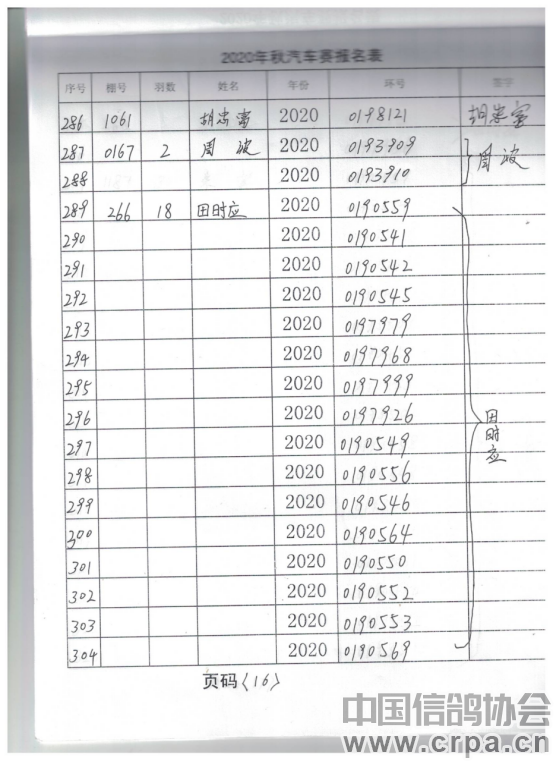 2020年秋汽车赛报名表
序号 棚号 羽数 姓名 年份 环号 签字
286 1061 胡忠富 2020 0198121 胡忠富
287 0167 2 周波 2020 0193909 周波
288 2020 0193910
289 266 18 田时应 2020 0190559
290 2020 0190541
291 2020 0190542
292 2020 0190545
293 2020 0197979
294 2020 0197968
295 2020 0197999
296 2020 0197926 田时应
297 2020 0190549
298 2020 0190556
299 2020 0190546
300 2020 0190564
301 2020 0190550
302 2020 0190552
303 2020 0190553
304 2020 0190569
页码〈16〉
中国信鸽协会
www.crpa.cn